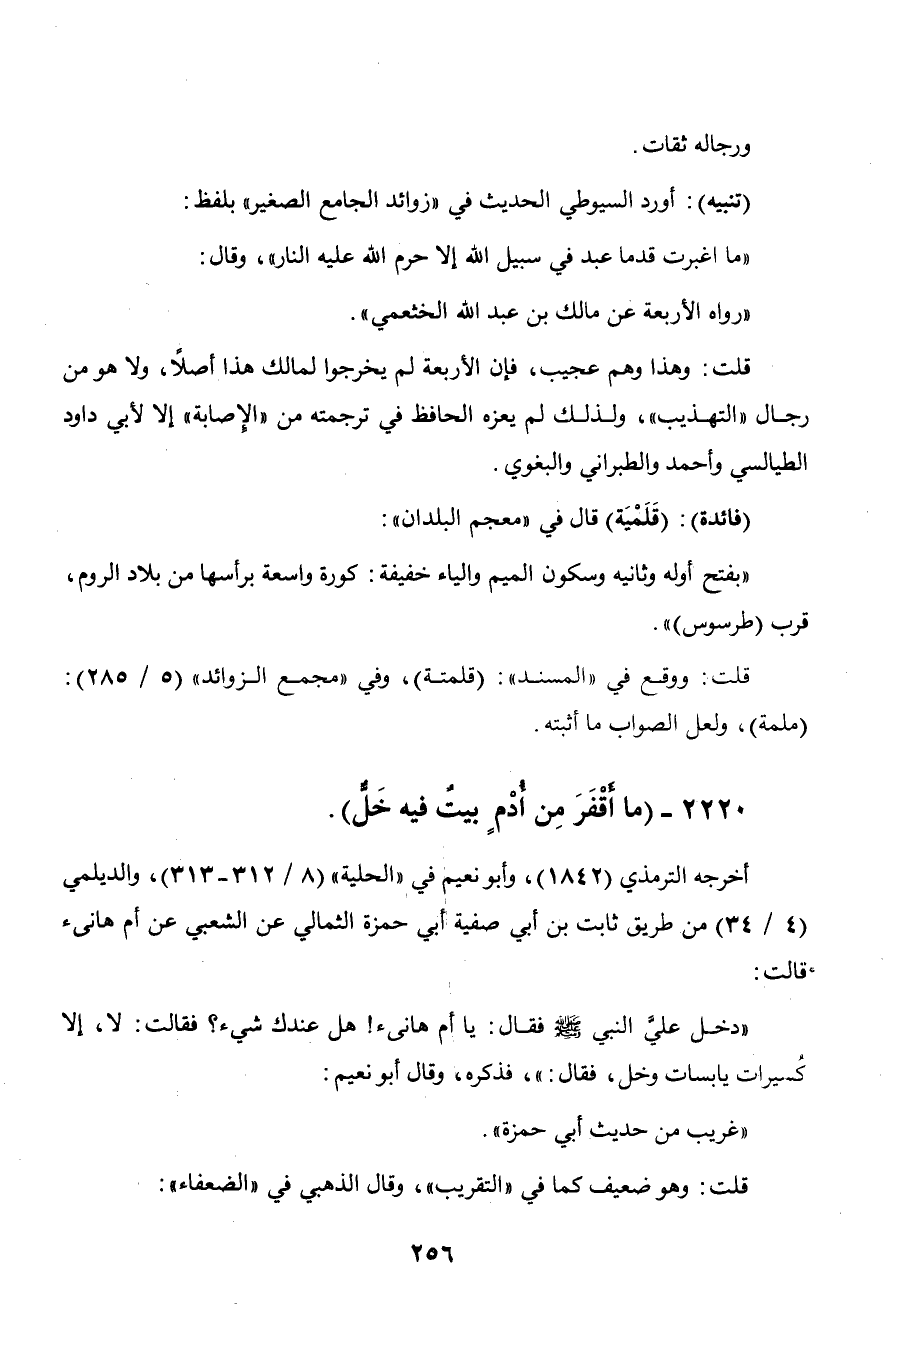 ورجاله ثقات .
(تنبيه) : أورد السيوطي الحديث في «زوائد الجامع الصغير» بلفظ :
«ما اغبرت قدما عبد في سبيل الله إلا حرم الله عليه النار» ، وقال :
«رواه الأربعة عن مالك بن عبد الله الخثعمي» .
قلت : وهذا وهم عجيب ، فإن الأربعة لم يخرجوا لمالك هذا أصلاً ، ولا هو من
رجال «التهذيب» ، ولذلك لم يعزه الحافظ في ترجمته من «الإصابة» إلا لأبي داود
الطيالسي وأحمد والطبراني والبغوي .
(فائدة) : (قَلَمْيَة) قال في «معجم البلدان» :
«بفتح أوله وثانيه وسكون الميم والياء خفيفة : كورة واسعة برأسها من بلاد الروم ،
قرب (طرسوس)» .
قلت : ووقع في «المسند» : (قلمتة) ، وفي «مجمع الزوائد» (٥ / ٢٨٥) :
(ملمة) ، ولعل الصواب ما أثبته .
٢٢٢٠ - (ما أَقْفَرَ مِن أُدْمٍ بيتٌ فيه خَلٌّ) .
أخرجه الترمذي (١٨٤٢) ، وأبو نعيم في «الحلية» (٨ / ٣١٢-٣١٣) ، والديلمي
(٤ / ٣٤) من طريق ثابت بن أبي صفية أبي حمزة الثمالي عن الشعبي عن أم هانىء
قالت :
«دخل عليَّ النبي ﷺ فقال : يا أم هانىء ! هل عندك شيء؟ فقالت : لا ، إلا
كُسيرات يابسات وخل ، فقال : » ، فذكره ، وقال أبو نعيم :
«غريب من حديث أبي حمزة» .
قلت : وهو ضعيف كما في «التقريب» ، وقال الذهبي في «الضعفاء» :
٢٥٦